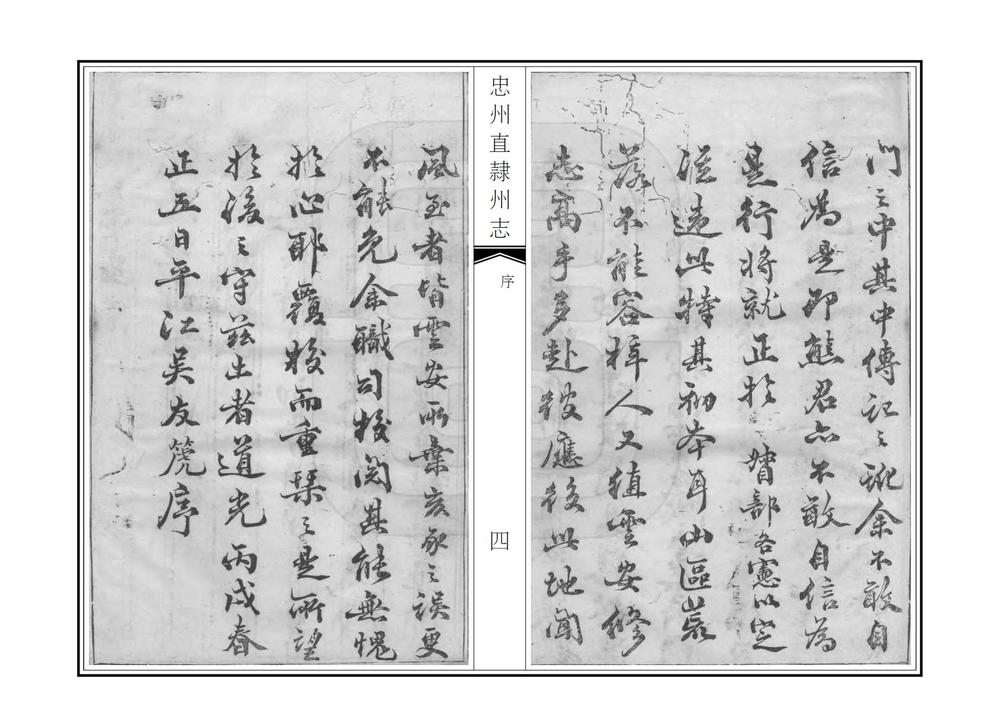 門之中其中傳記之訛余不敢自
信為是即熊君亦不敢自信為
是行將就正於 督部各憲以定
從違此特其初本耳山區荒
落不能容梓人又值雲安修
志高手多赴彼應役此地聞
忠州直隸州志
序
四
風至者皆雲安所棄亥豕之誤更
不能免余職司校閱其能無愧
於心耶覆校而重栞之是所望
於後之守茲土者道光丙戌春
正五日平江吳友篪序